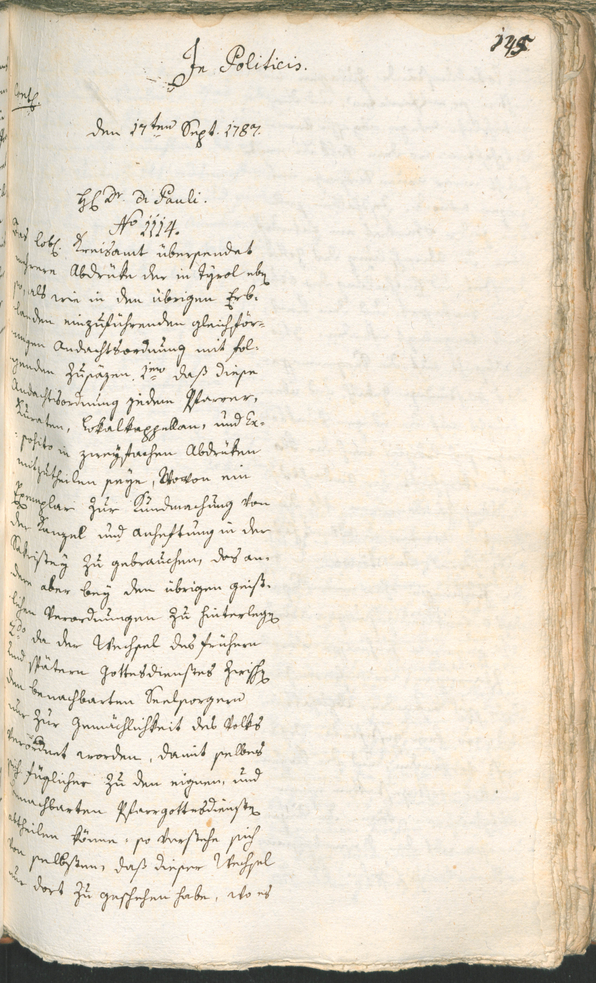 145
In Politicis.
den 17ten Sept. 1787.
H. Dr. di Pauli.
No 1114.
Das lobl. Kreisamt übersendet
mehrere Abdrüke der in Tyrol eben
so, als wie in den übrigen Erb-
landen einzuführenden gleichför-
migen Andachtsordnung mit fol-
genden Zusäzen. 1mo daß diese
Andachtsordnung jedem Pfarrer,
Kuraten, Lokalkappellan, und Ex-
posito in zweyfachen Abdrüken
mitzutheilen seye, wovon ein
Exemplar zur Kundmachung von
der Kanzel und Anheftung in der
Sakristey zu gebrauchen, das an-
dere aber bey den übrigen geist-
lichen Verordnungen zu hinterlegen
2do da der Wechsel des frühern
und spätern Gottesdienstes zwischen
den benachbarten Seelsorgern
nur zur Gemächlichkeit des Volks
verordnet worden, damit selbes
sich füglicher zu den eignen, und
benachbarten Pfarrgottesdiensten
abtheilen könne: so verstehe sich
von selbsten, daß dieser Wechsel
nur dort zu geschehen habe, wo es